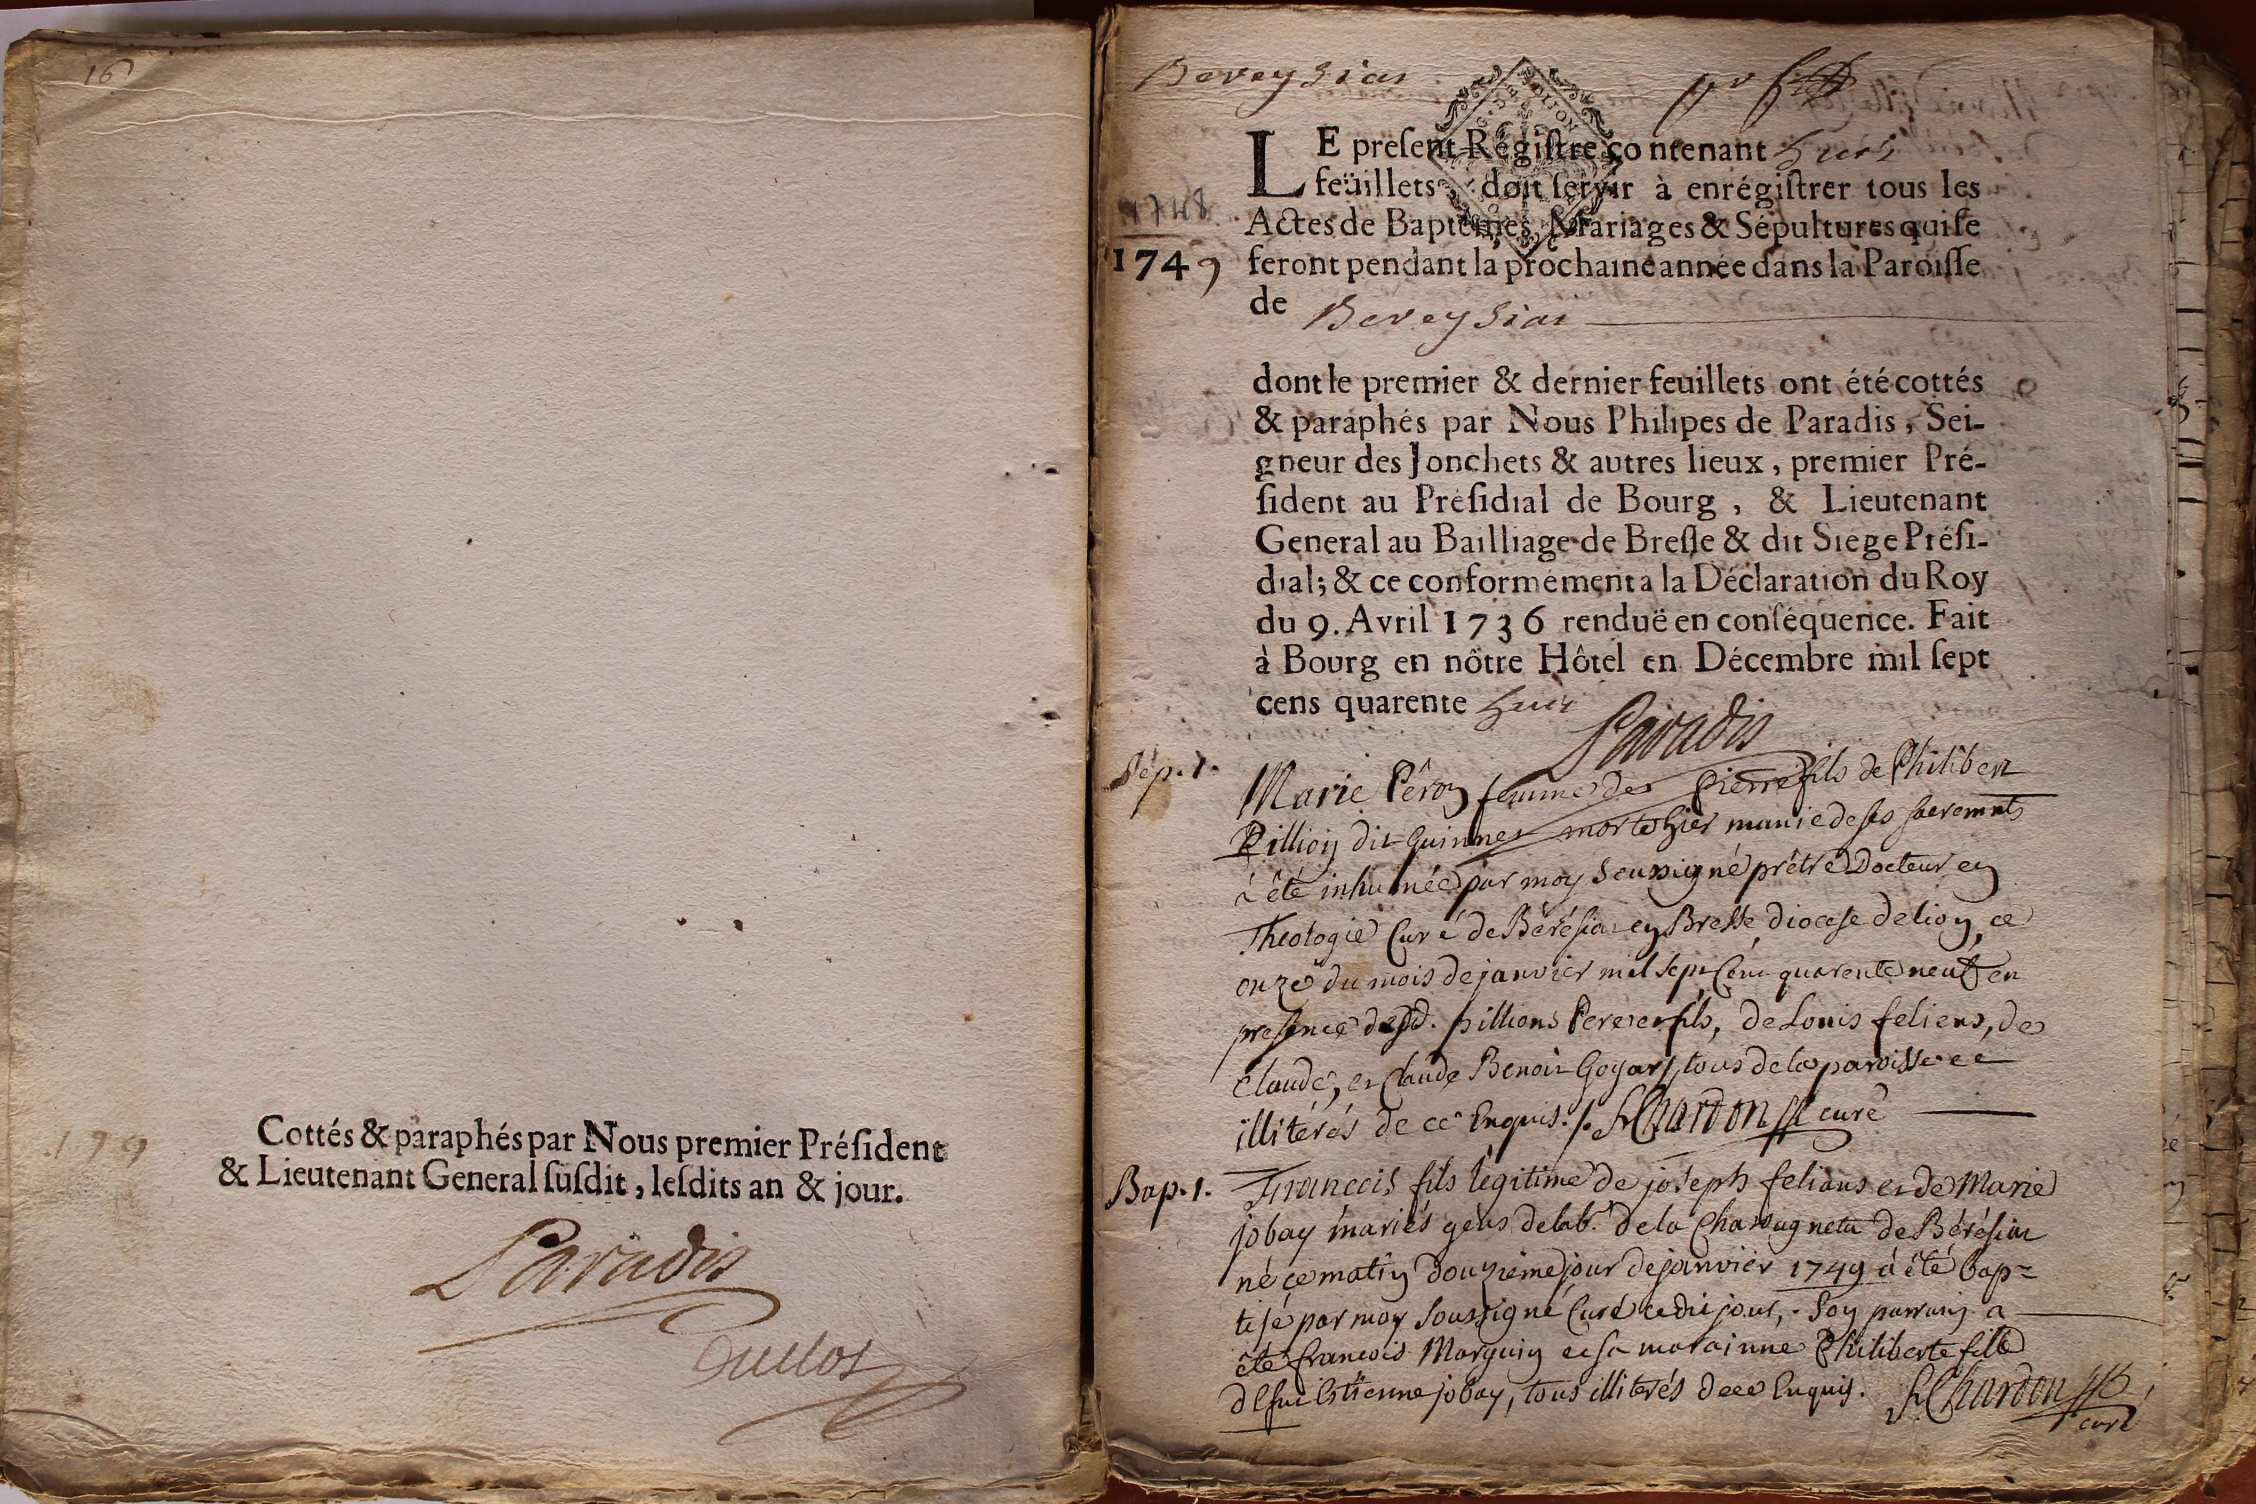 16
Cottés & paraphés par Nous premier Préſident
& Lieutenant General ſuſdit, leſdits an & jour.
Paradis
Duclos
Bereysiat
LE preſent Régiſtre contenant huit
feüillets, doit ſervir à enrégiſtrer tous les
1748
Actes de Baptêmes, Mariages & Sépultures qui ſe
1749
feront pendant la prochaine année dans la Paroiſſe
de Bereysiat
dont le premier & dernier feuillets ont été cottés
& paraphés par Nous Philipes de Paradis, Sei-
gneur des Jonchets & autres lieux, premier Pré-
ſident au Préſidial de Bourg, & Lieutenant
General au Bailliage de Breſſe & dit Siége Préſi-
dial; & ce conformément a la Déclaration du Roy
du 9. Avril 1736 renduë en conſéquence. Fait
à Bourg en nôtre Hôtel en Décembre mil ſept
cens quarente huit
Paradis
Sép. 1.
Marie Pêroz femme de Pierre fils de Philibert
Pillion dit Guinnet morte hier munie de ses sacremnts
à êté inhumée par moy soussigné prêtre Docteur en
Theologie Curé de Bérésiat en Bresse diocese de lion, ce
onze du mois de janvier mil sept Cent quarente neuf en
presence desd. pillions Pere et fils, de Louis feliens, de
Claude, et Claude Benoit Goyart, tous de la paroisse
illitérés de ce Enquis. /. Chardon curé
Bap. 1.
Francois fils legitime de joseph felians et de Marie
jobay mariés gens de lab. de la de Bérésiat
né ce matin douzieme jour de janvier 1749 à êté bap=
tisé par moy soussigné Curé cedit jour, . Son parrain a
êté francois Marguin et sa marainne Philiberte fille
de fut Etienne jobay, tous illiterés de ce Enquis. Chardon
curé